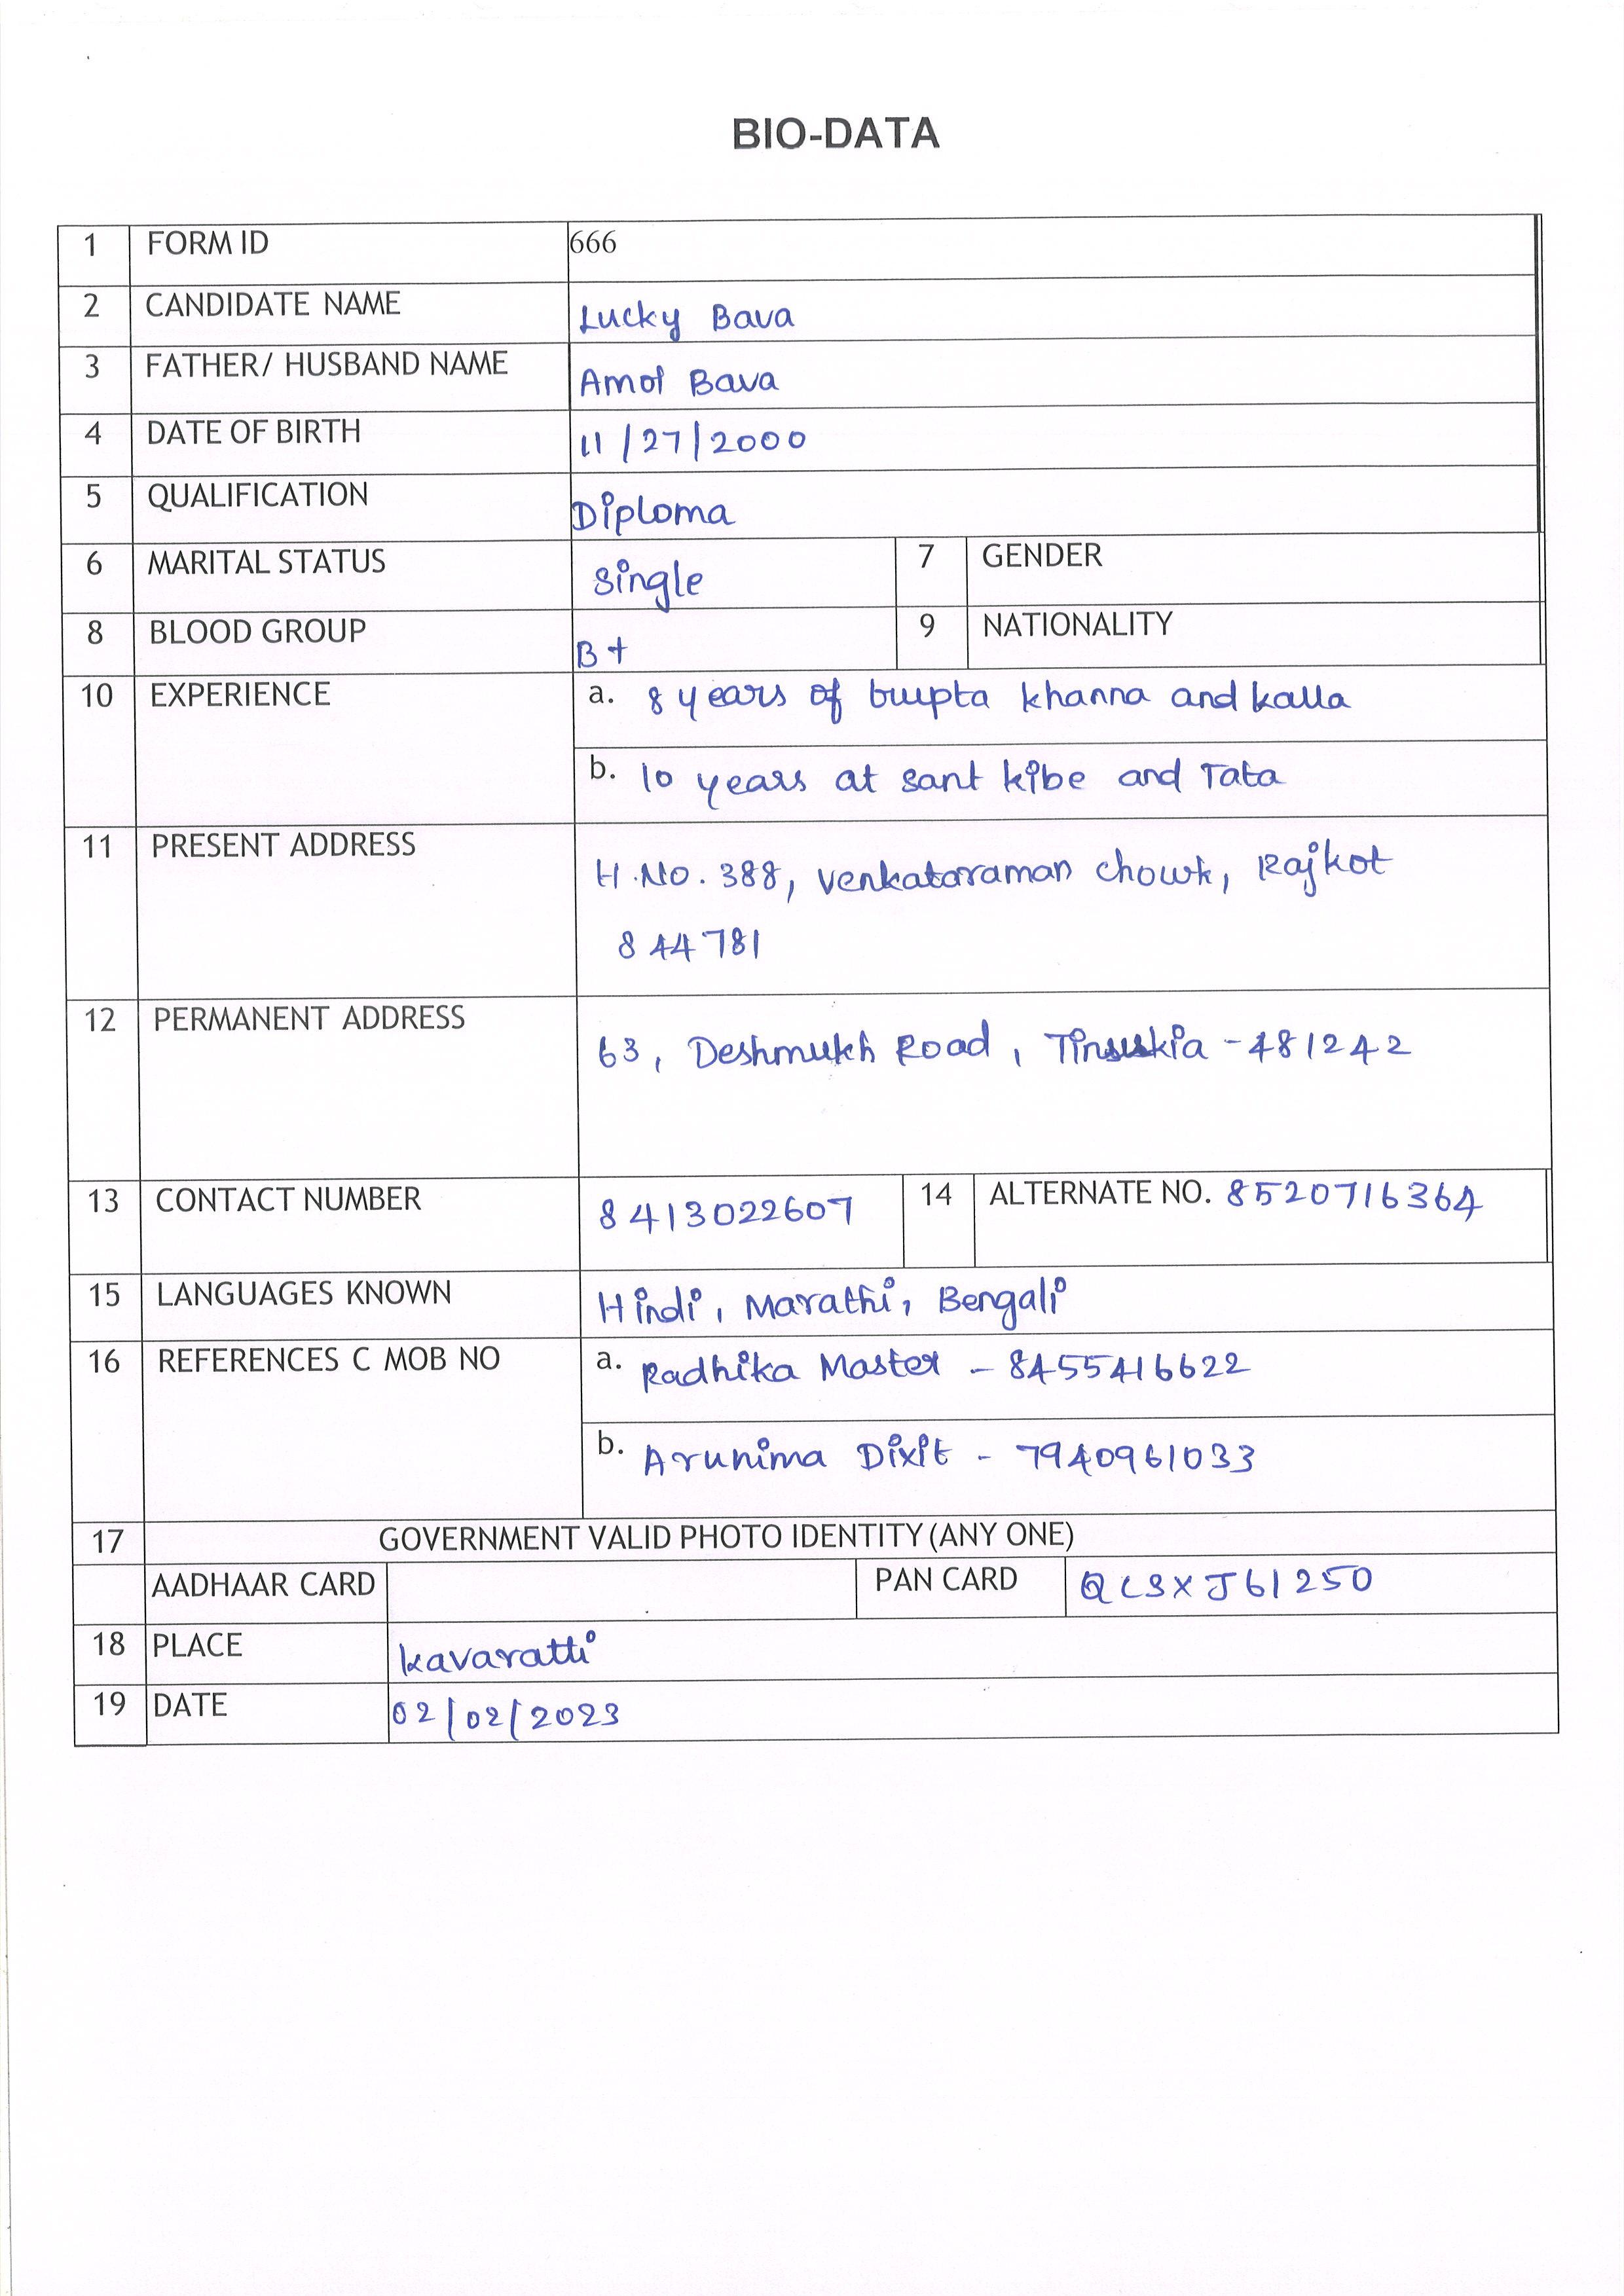 BIO-DATA
1 FORM ID 666
2 CANDIDATE NAME Lucky Bava
3 FATHER/ HUSBAND NAME Amol Bava
4 DATE OF BIRTH 11/27/2000
5 QUALIFICATION Diploma
6 MARITAL STATUS single 7 GENDER
8 BLOOD GROUP B+ 9 NATIONALITY
10 EXPERIENCE a. 8 years of khanna and kalla
b. 10 years at sant kibe and Tata
11 PRESENT ADDRESS
H.No. 388, Venkataraman chowk, Rajkot
844781
12 PERMANENT ADDRESS
63, Deshmukh Road, Tinsukia - 481242
13 CONTACT NUMBER 8413022607 14 ALTERNATE NO. 8520716364
15 LANGUAGES KNOWN Hindi, Marathi, Bengali
16 REFERENCES C MOB NO a. Radhika Master - 8455416622
b. Arunima Dixit - 7940961033
17 GOVERNMENT VALID PHOTO IDENTITY (ANY ONE)
AADHAAR CARD PAN CARD QCSXJ61250
18 PLACE kavaratti
19 DATE 02/02/2023